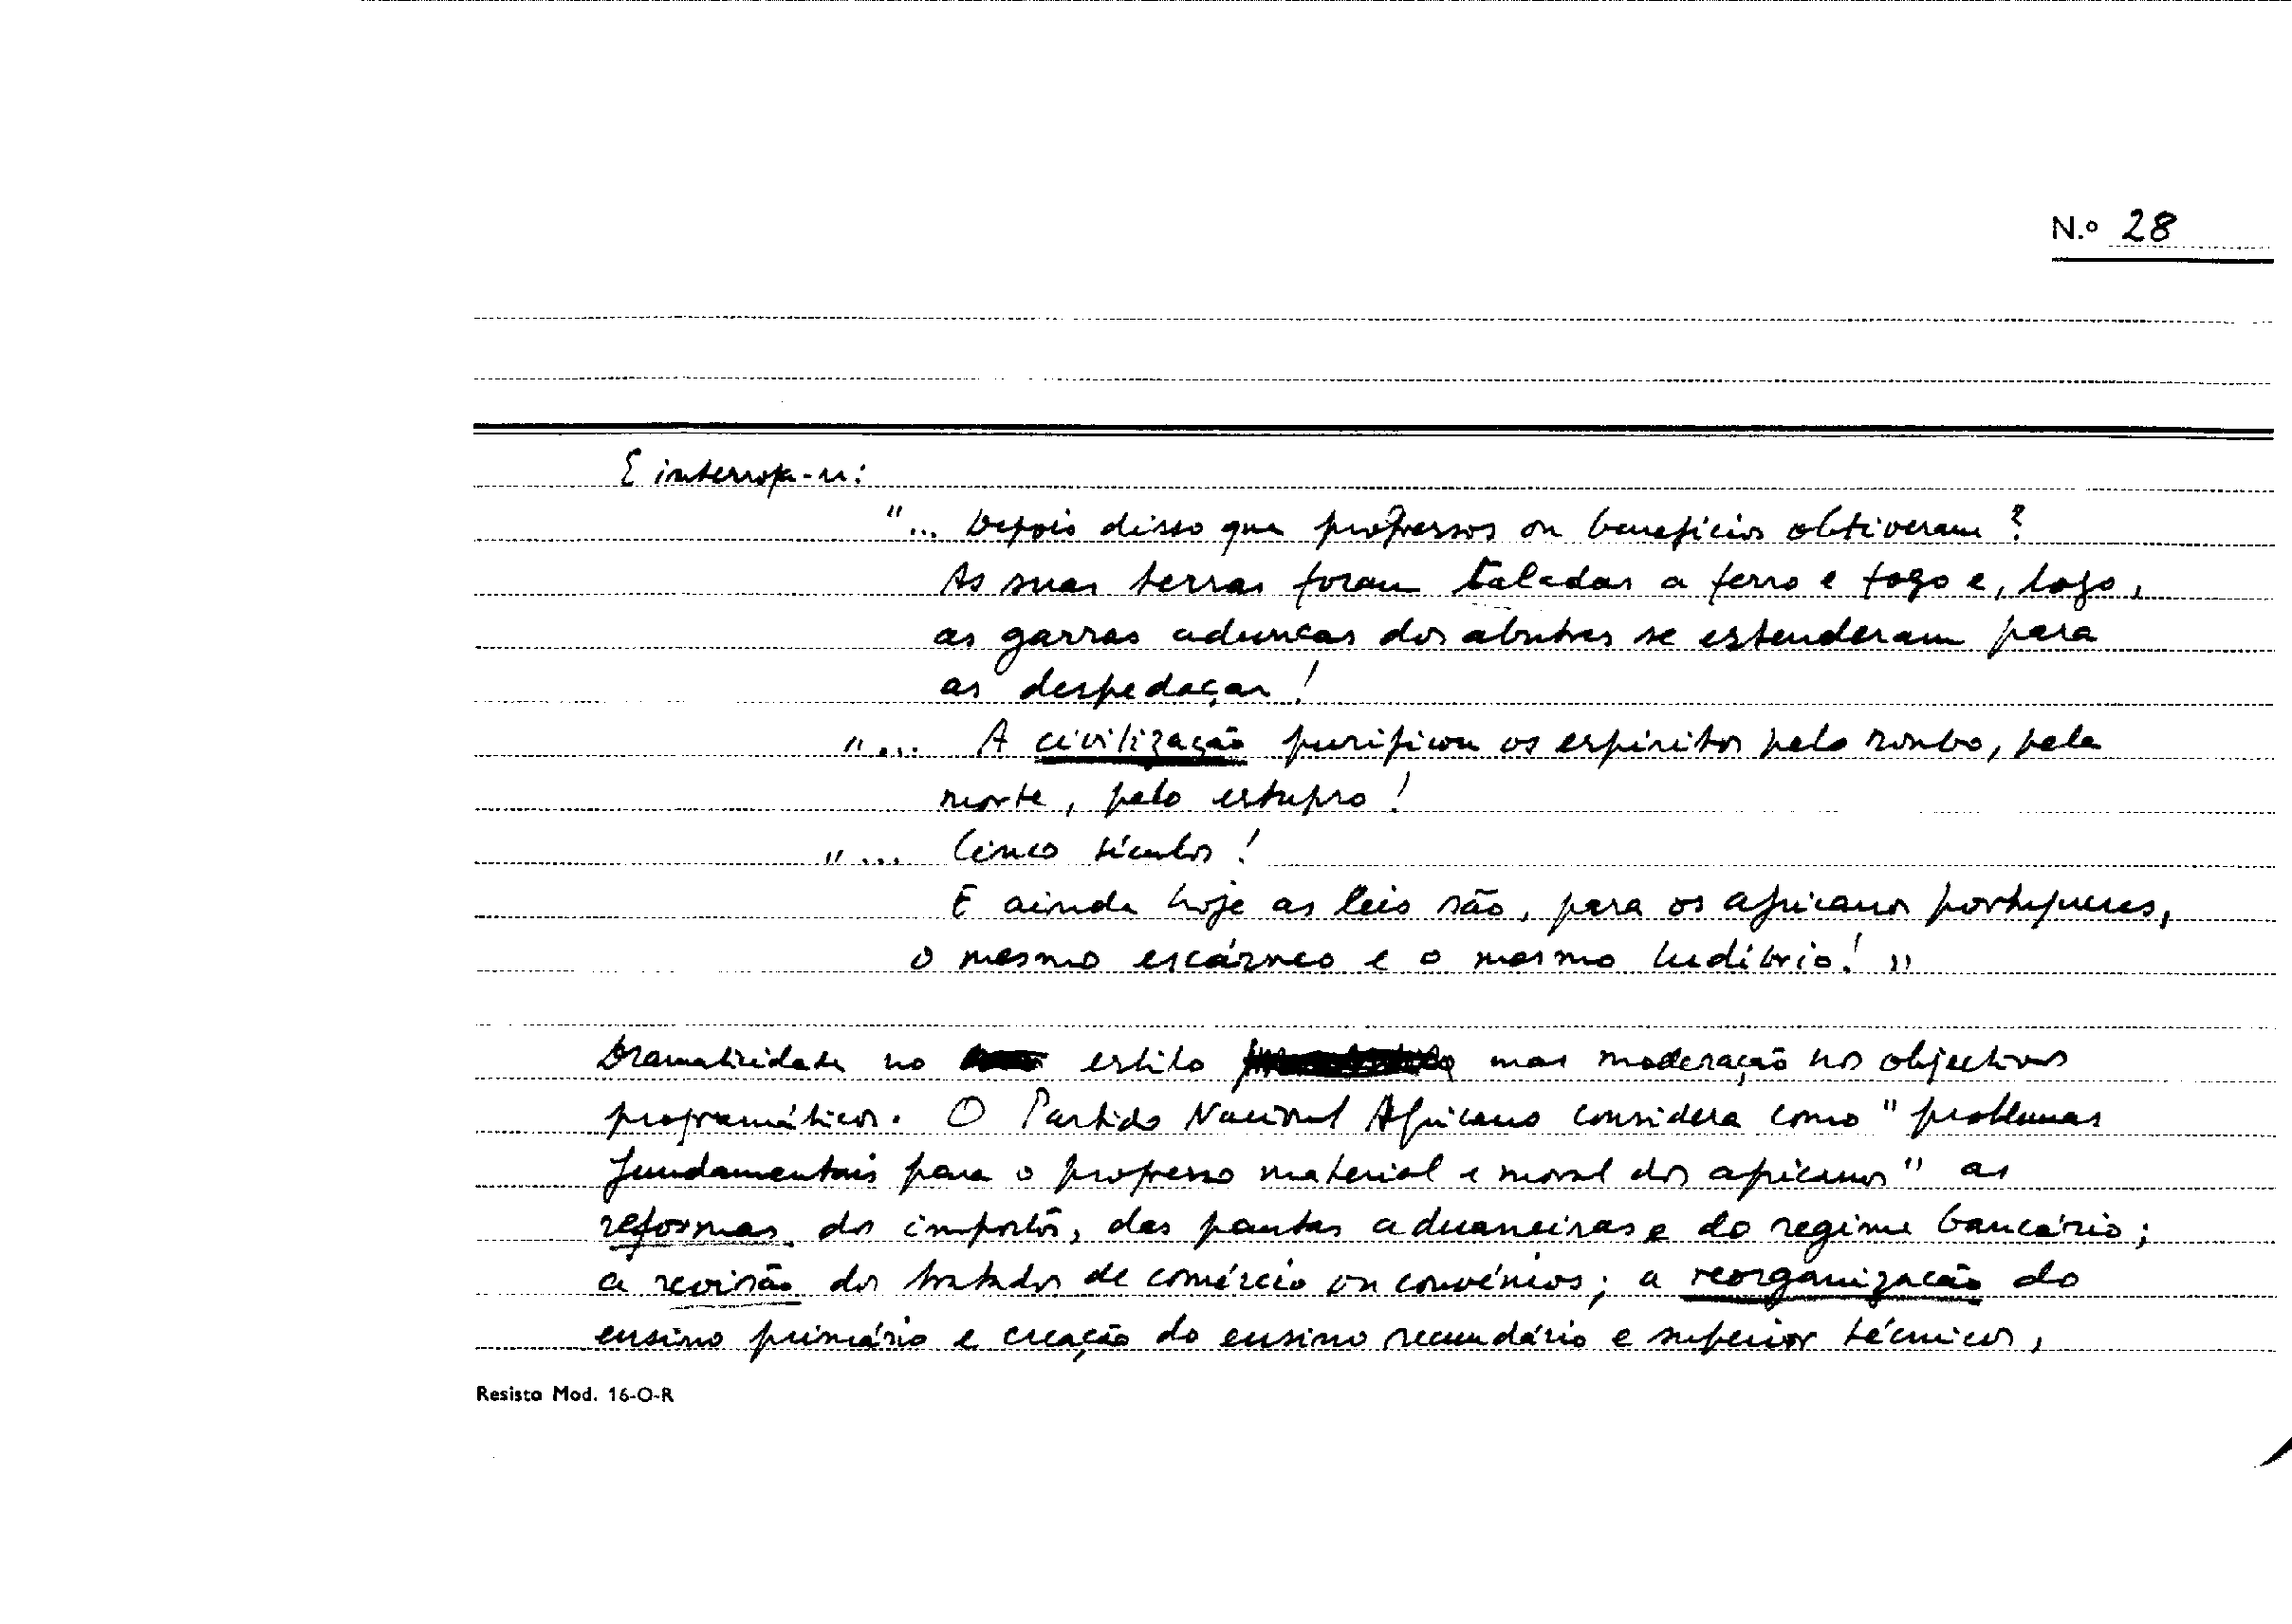 N.º 28
E interroga-se:
"... Depois disso que progressos ou benefícios obtiveram?
As suas terras foram taladas a ferro e fogo e, logo,
as garras aduncas dos abutres se estenderam para
as despedaçar!
"... A civilização purificou os espíritos pelo roubo, pela
morte, pelo estupro!
"... Cinco séculos!
E ainda hoje as leis são, para os africanos portugueses,
o mesmo escárneo e o mesmo ludíbrio!"
Dramaticidade no estilo mas moderação nos objectivos
programáticos. O Partido Nacional Africano considera como "problemas
fundamentais para o progresso material e moral dos africanos" as
reformas dos impostos, das pautas aduaneiras e do regime bancário;
a revisão dos tratados de comércio ou convénios; a reorganização do
ensino primário e creação do ensino secundário e superior técnicos,
Resisto Mod. 16-O-R